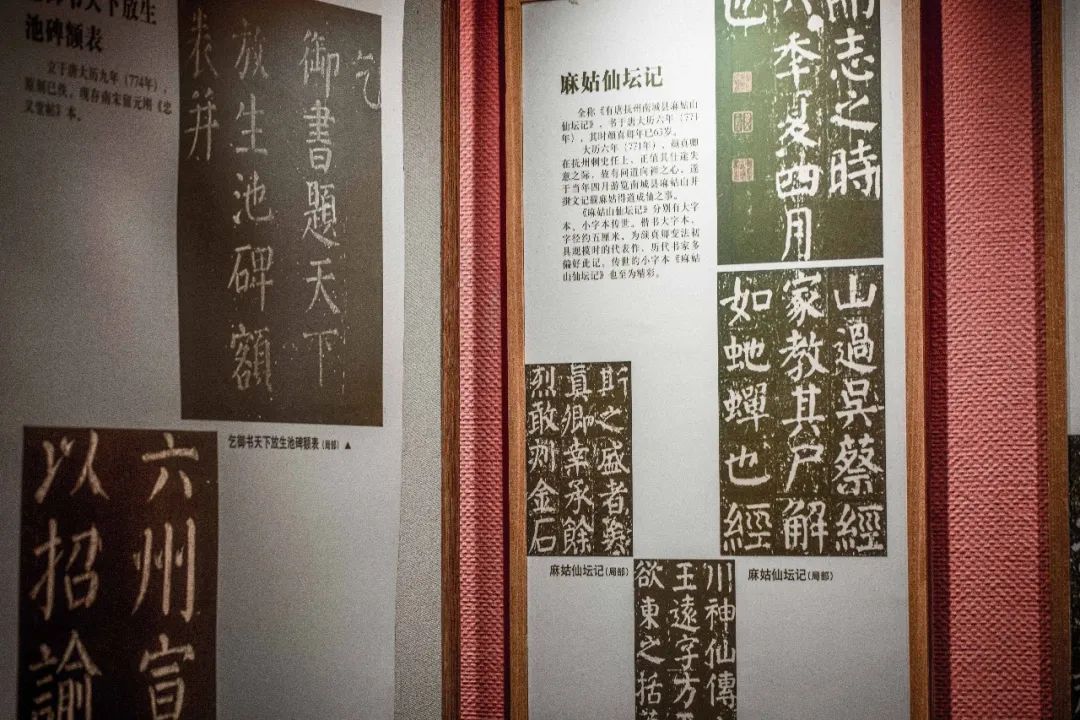 御书天下放生
池碑额表
立于唐大历九年（774年），
原刻已佚，现存南宋留元刚《忠
义堂帖》本。
乞
御書題天下
放生池碑額
表并
乞御书天下放生池碑额表（局部）▲
六州宣
以招諭
麻姑仙坛记
全称《有唐抚州南城县麻姑山
仙坛记》，书于唐大历六年（771
年），其时颜真卿年已63岁。
大历六年（771年），颜真卿
在抚州刺史任上，正值其仕途失
意之际，故有问道向禅之心，遂
于当年四月游览南城县麻姑山并
撰文记载麻姑得道成仙之事。
《麻姑山仙坛记》分别有大字
本、小字本传世。楷书大字本，
字径约五厘米，为颜真卿变法初
具规模时的代表作，历代书家多
偏好此记。传世的小字本《麻姑
山仙坛记》也至为精彩。
而志之時
六年夏四月
也
山過吳蔡經
家教其尸解
如虵蟬也經
斯之盛者矣
真卿幸承餘
烈敢刊金石
麻姑仙坛记（局部）
麻姑仙坛记（局部）
川神仙傳
王遠字方
欲東之括